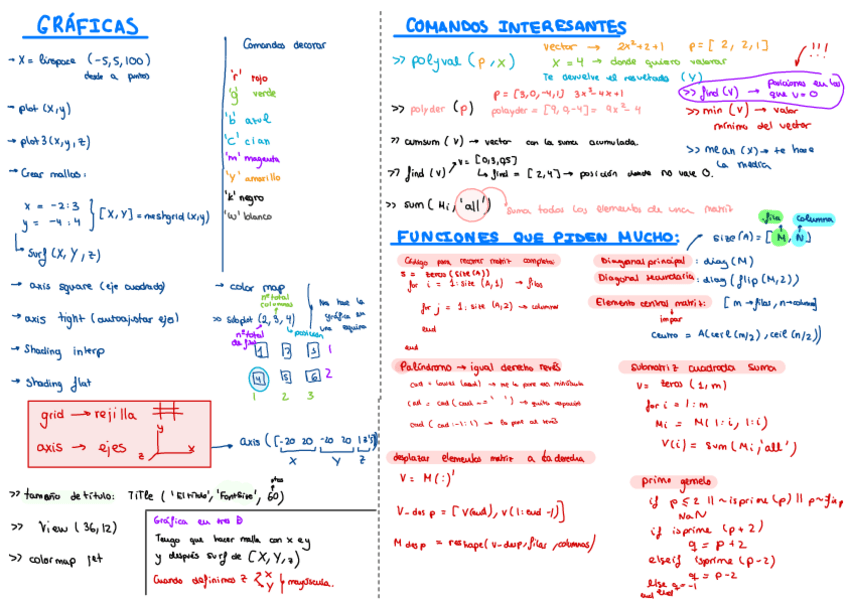 GRÁFICAS
→ X = linspace (-5,5,100)
desde a puntos
→ plot (x,y)
→ plot3(x,y,z)
→ Crear mallas:
x = -2:3
y = -4:4
[X,Y] = meshgrid (x,y)
Surf (X,Y,z)
→ axis square (eje cuadrado)
→ axis tight (autoajustar ejes)
→ Shading interp
→ Shading flat
Comandos decorar
'r' rojo
'g' verde
'b' azul
'c' cian
'm' magenta
'y' amarillo
'k' negro
'w' blanco
→ color map
nº total columnas
>> Subplot (2,3,4)
→ posición
nº total de filas
Nos hace la gráfica en una esquina
1 2 3 1
4 5 6 2
1 2 3
grid → rejilla
axis → ejes
y
z x
→ axis ([-20 20 -20 20
X Y Z
>> tamaño de título: TiTle ('El título', 'FontSize', 60)
>> View (36,12)
>> colormap jet
Gráfica en tres D
Tengo que hacer malla con x e y
y después surf de (X,Y,z)
Cuando definimos z x y mayúscula.
COMANDOS INTERESANTES
>> polyval (p,x)
vector → 2x²+2+1 p=[2, 2, 1]
x = 4 → donde quiero valorar
Te devuelve el resultado (y)
!!!
>> find (v) → posiciones en las que v=0
p = [3,0,-4,1] 3x³-4x+1
>> polyder (p) polayder = [9,0,-4] = 9x²-4
>> min (v) → valor mínimo del vector
>> cumsum (v) → vector con la suma acumulada.
>> mean (x) → te hace la media
v = [0,3,0,5]
>> find (v) find = [2,4] → posición donde no vale 0.
>> sum (Mi, 'all') Suma todos los elementos de una matriz
FUNCIONES QUE PIDEN MUCHO:
fila columna
size(A) = [M, N]
Código para recorrer matriz completa
s = zeros (size(A))
for i = 1:size (A,1) → filas
for j = 1:size (A,2) → columnas
end
end
Diagonal principal: diag (M)
Diagonal secundaria: diag (flip (M,2))
Elemento central matriz: [m→filas, n→column]
impar
centro = A(ceil (m/2), ceil (n/2))
Palíndromo → igual derecho revés
cad = lower (cad) → me lo pone en minúscula
cad = cad (cad ~= ' ') → quita espacios
cad (end:-1:1) → lo pone al revés
desplazar elementos matriz a la derecha
V = M(:)'
V-desp = [V(end), v(1:end-1)]
Mdesp = reshape (v-desp, filas, columnas)
Submatriz cuadrada suma
V = zeros (1,m)
for i = 1:m
Mi = M(1:i, 1:i)
V(i) = sum (Mi,'all')
primo gemelo
if p ≤ 2 || ~isprime (p) || p~=fix p
NaN
if isprime (p+2)
q = p+2
elseif isprime (p-2)
q = p-2
else q=-1
end end